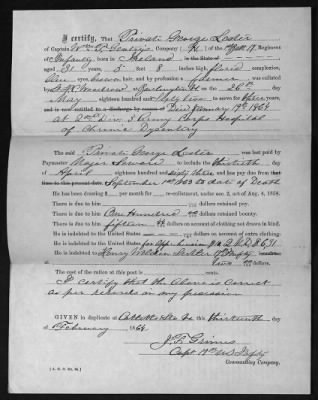 I certify, that Private George Leslie
of Captain Wm P. Gentry's Company ( H. ) of the 17 Regiment
of Infantry born in Ireland in the State of
aged 31 years, 5 feet 8 inches high, Florid complexion,
Blue eyes, brown hair, and by profession a farmer was enlisted
by at Burlington Vt on the 26th
May eighteen hundred and Sixty two to serve three years,
and is now entitled to a discharge by reason of Died January 17th 1864
at 2nd Div. 5 Army Corps Hospital
of Chronic Dysentery
The said Private George Leslie was last paid by
Paymaster Major Seward to include the thirtieth day
of April eighteen hundred and sixty three, and has pay due from that
time to the present date September 1st 1863 to date of Death
He has been drawing $ per month for re-enlistment, under sec. 2, act of Aug. 4, 1854.
There is due to him dollars retained pay.
There is due to him One Hundred dollars retained bounty.
There is due to him fifteen dollars on account of clothing not drawn in kind.
He is indebted to the United States dollars on account of extra clothing:
He is indebted to the United States for
He is indebted to Henry Wilson Sutler
dollars.
The cost of the rations at this post is cents.
I certify that the Above is Correct
as per records in my possession
GIVEN in duplicate at this thirteenth day
of February 1864.
J. F. Grimes
Capt 17th U.S. Infty
Commanding Company.